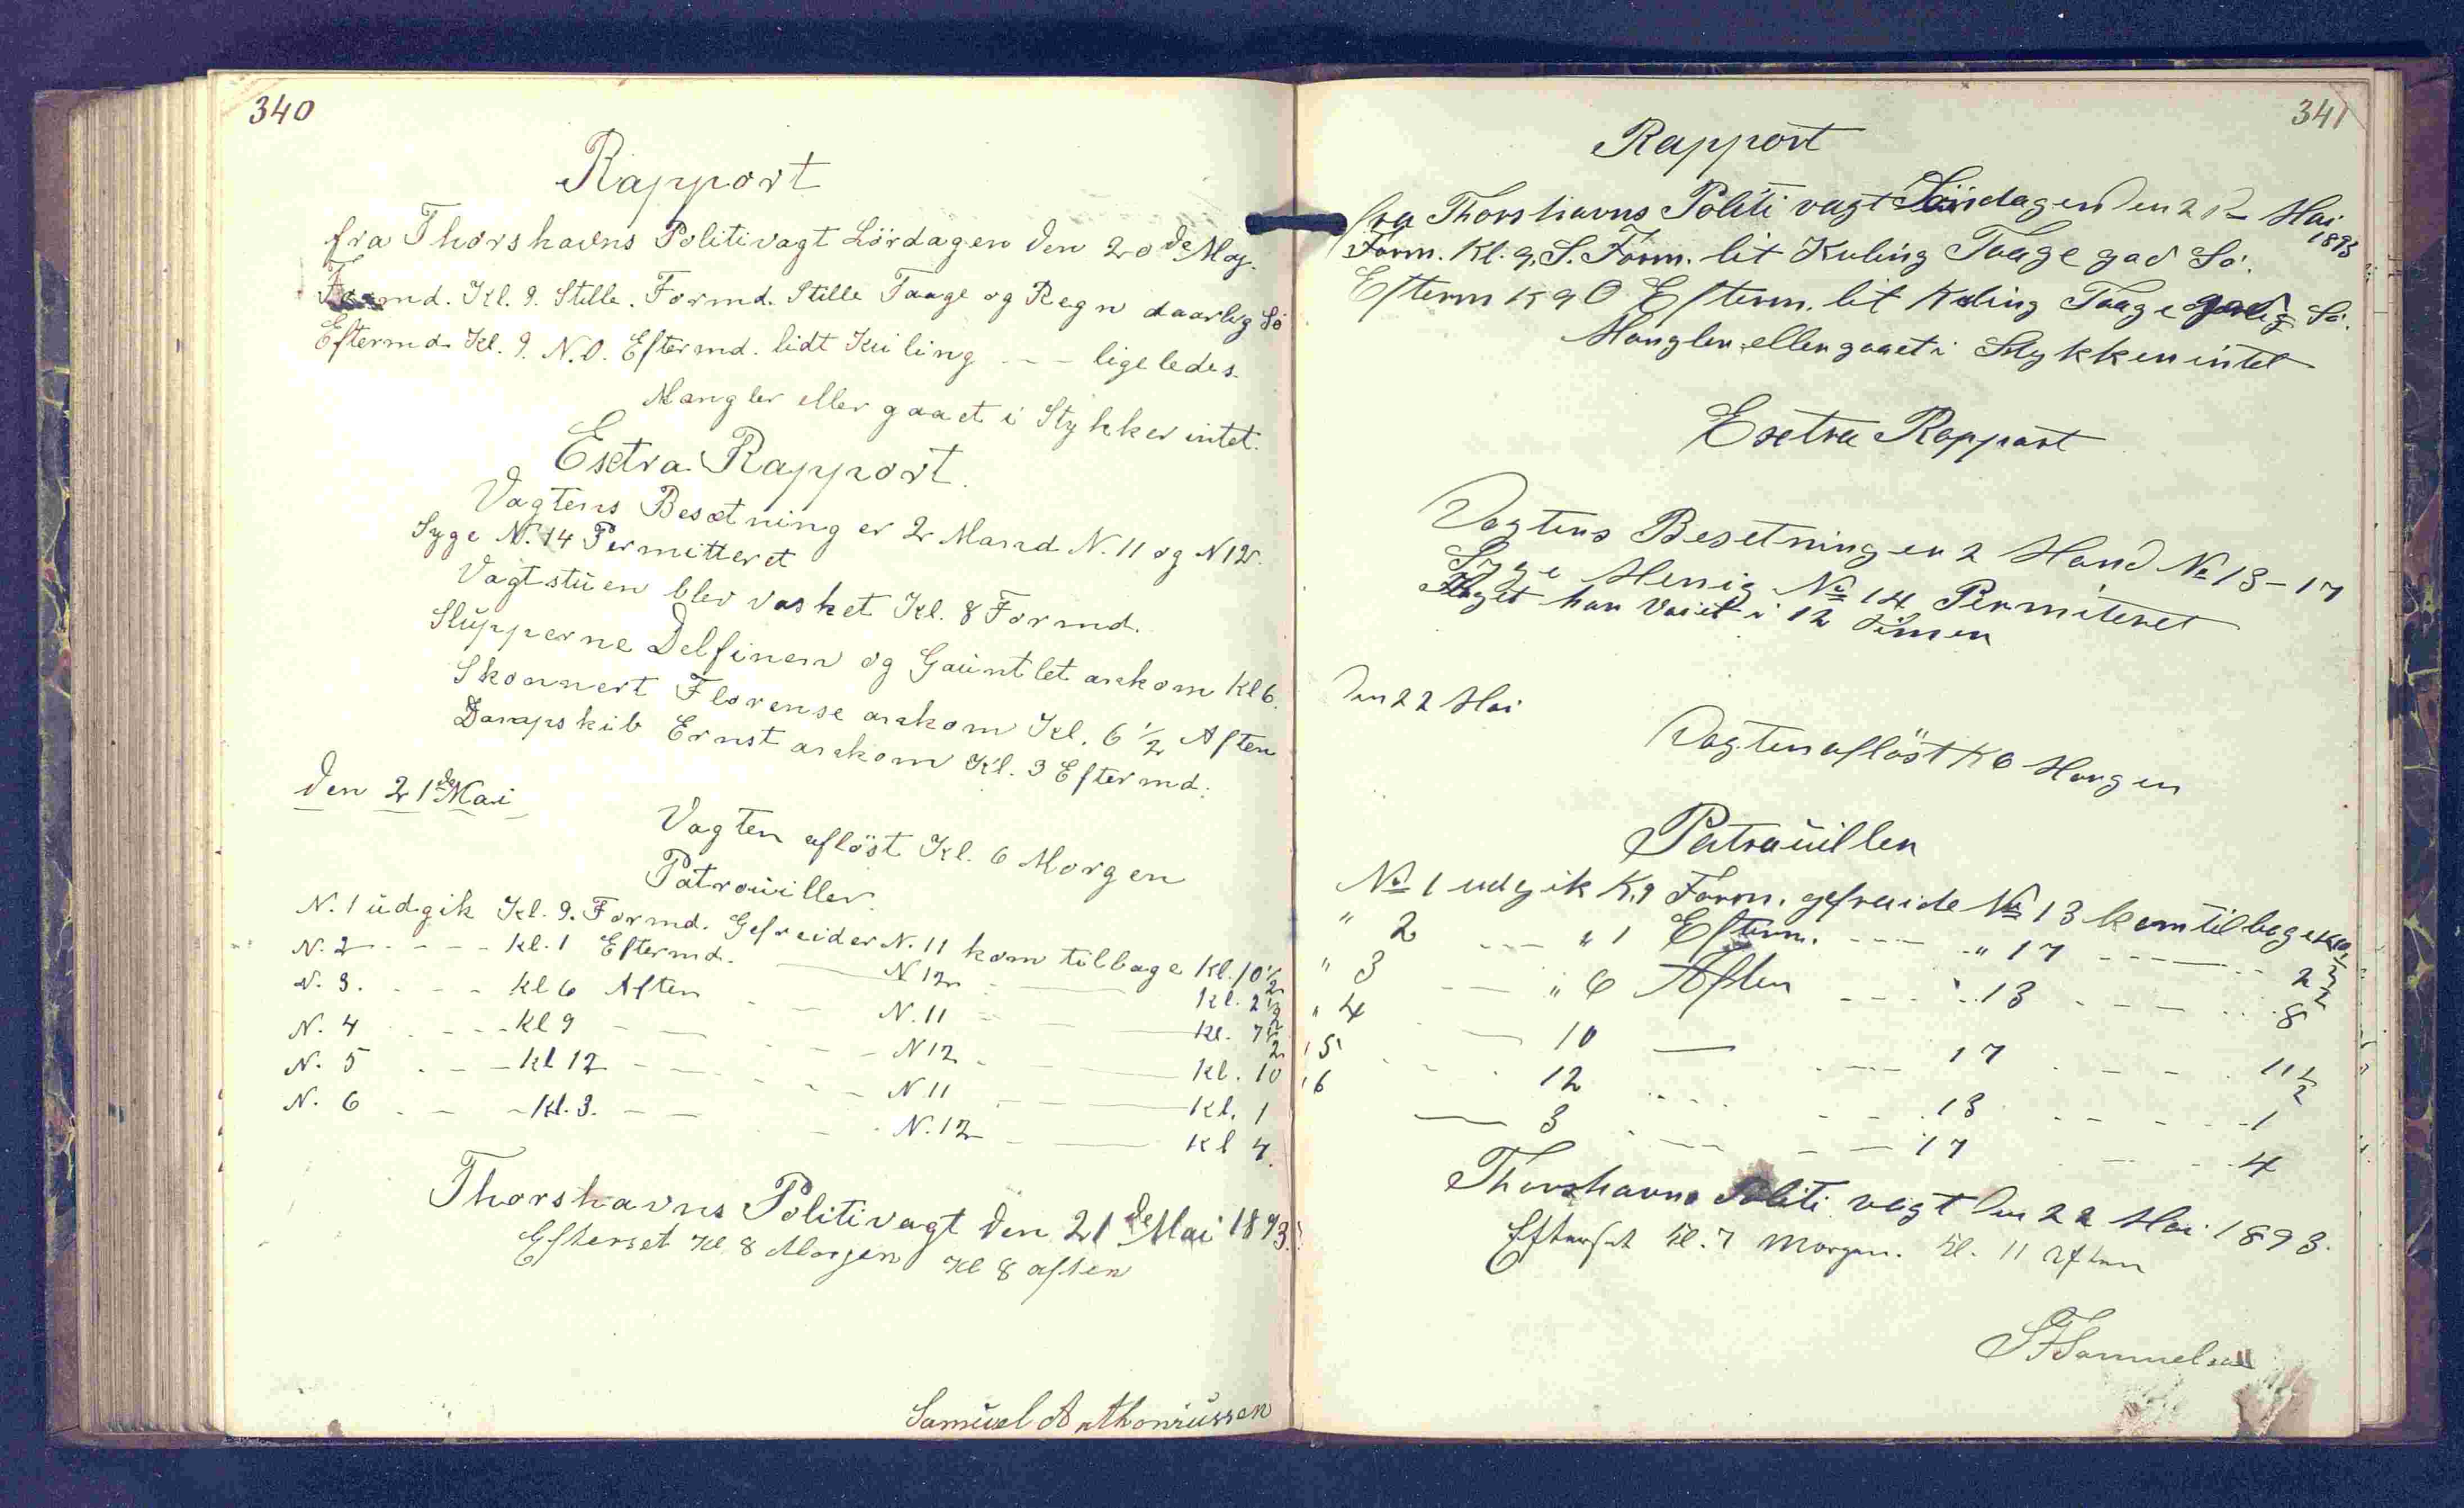 340
Rapport
fra Thorshavns Politivagt Lördagen den 20de Maj.
Formd. Kl. 9. Stille. Formd. Stille Taage og Regn daarlig Sö
Eftermd. Kl. 9. N.O. Eftermd. lidt Kuling - - ligeledes.
Mangler eller gaaet i Stykker intet.
Extra Rapport.
Vagtens Besætning er 2 Mand N. 11 og N 12.
Syge N. 14 Permitteret
Vagtstuen blev vasket Kl. 8 Formd.
Slupperne Delfinen og Gauntlet ankom Kl 6.
Skonnert Florense ankom Kl. 6 1/2 Aften
Dampskib Ernst ankom Kl. 3 Eftermd.
den 21de Mai
Vagten aflöst Kl. 6 Morgen
Patrouiller.
N. 1 udgik Kl. 9. Formd. Gefreider N. 11 kom tilbage Kl. 10 1/2
N. 2 - - - - Kl. 1 Eftermd. — N 12 - — Kl. 2 1/2
N. 3. - - - Kl 6 Aften - - N. 11 - — Kl. 7 1/2
N. 4 - - - Kl 9 - — - - N 12 - — Kl. 10
N. 5 - - - Kl 12 - — - - N 11 - — Kl. 1
N. 6 - - - Kl. 3. - — - - N. 12 - — Kl 4.
Thorshavns Politivagt den 21de Mai 1893.
Efterset Kl 8 Morgen Kl 8 aften
Samuel Anthoniussen
341
Rapport
fra Thorshavns Politi vagt Söndagen Den 21 - Mai
1893
Form. Kl. 9. S. Form. lit Kuling Taage god Sö.
Efterm K 9 O Efterm. lit Kuling Taage Sö.
Mangler eller gaaet i Stykker intet
Exetra Rappart
Vagtens Besetning er 2 Mand No 13 - 17
Syge Menig No 14 Permiteret
Flaget har Vaiet i 12 Timer
Den 22 Mai
Vagten aflöst K 6 Morgen
Patrouiller
No 1 udgik K. 9 Form. gefreide No 13 kom tilbage K 10 1/2
" 2 - - - " 1 Efterm. - - - " 17 - - - - 2 1/2
" 3 - - " 6 Aften - - - " 13 - - - - 8
" 4 — 10 — - - - 17 - - - 11 1/2
" 5 - - - 12 - - - - 13 - - - - 1
" 6 — 3 - - - - 17 - - - 4
Thorshavns Politi vagt Den 22 Mai 1893.
Efterset Kl. 7 Morgen. Kl. 11 Aften
Samuelsen